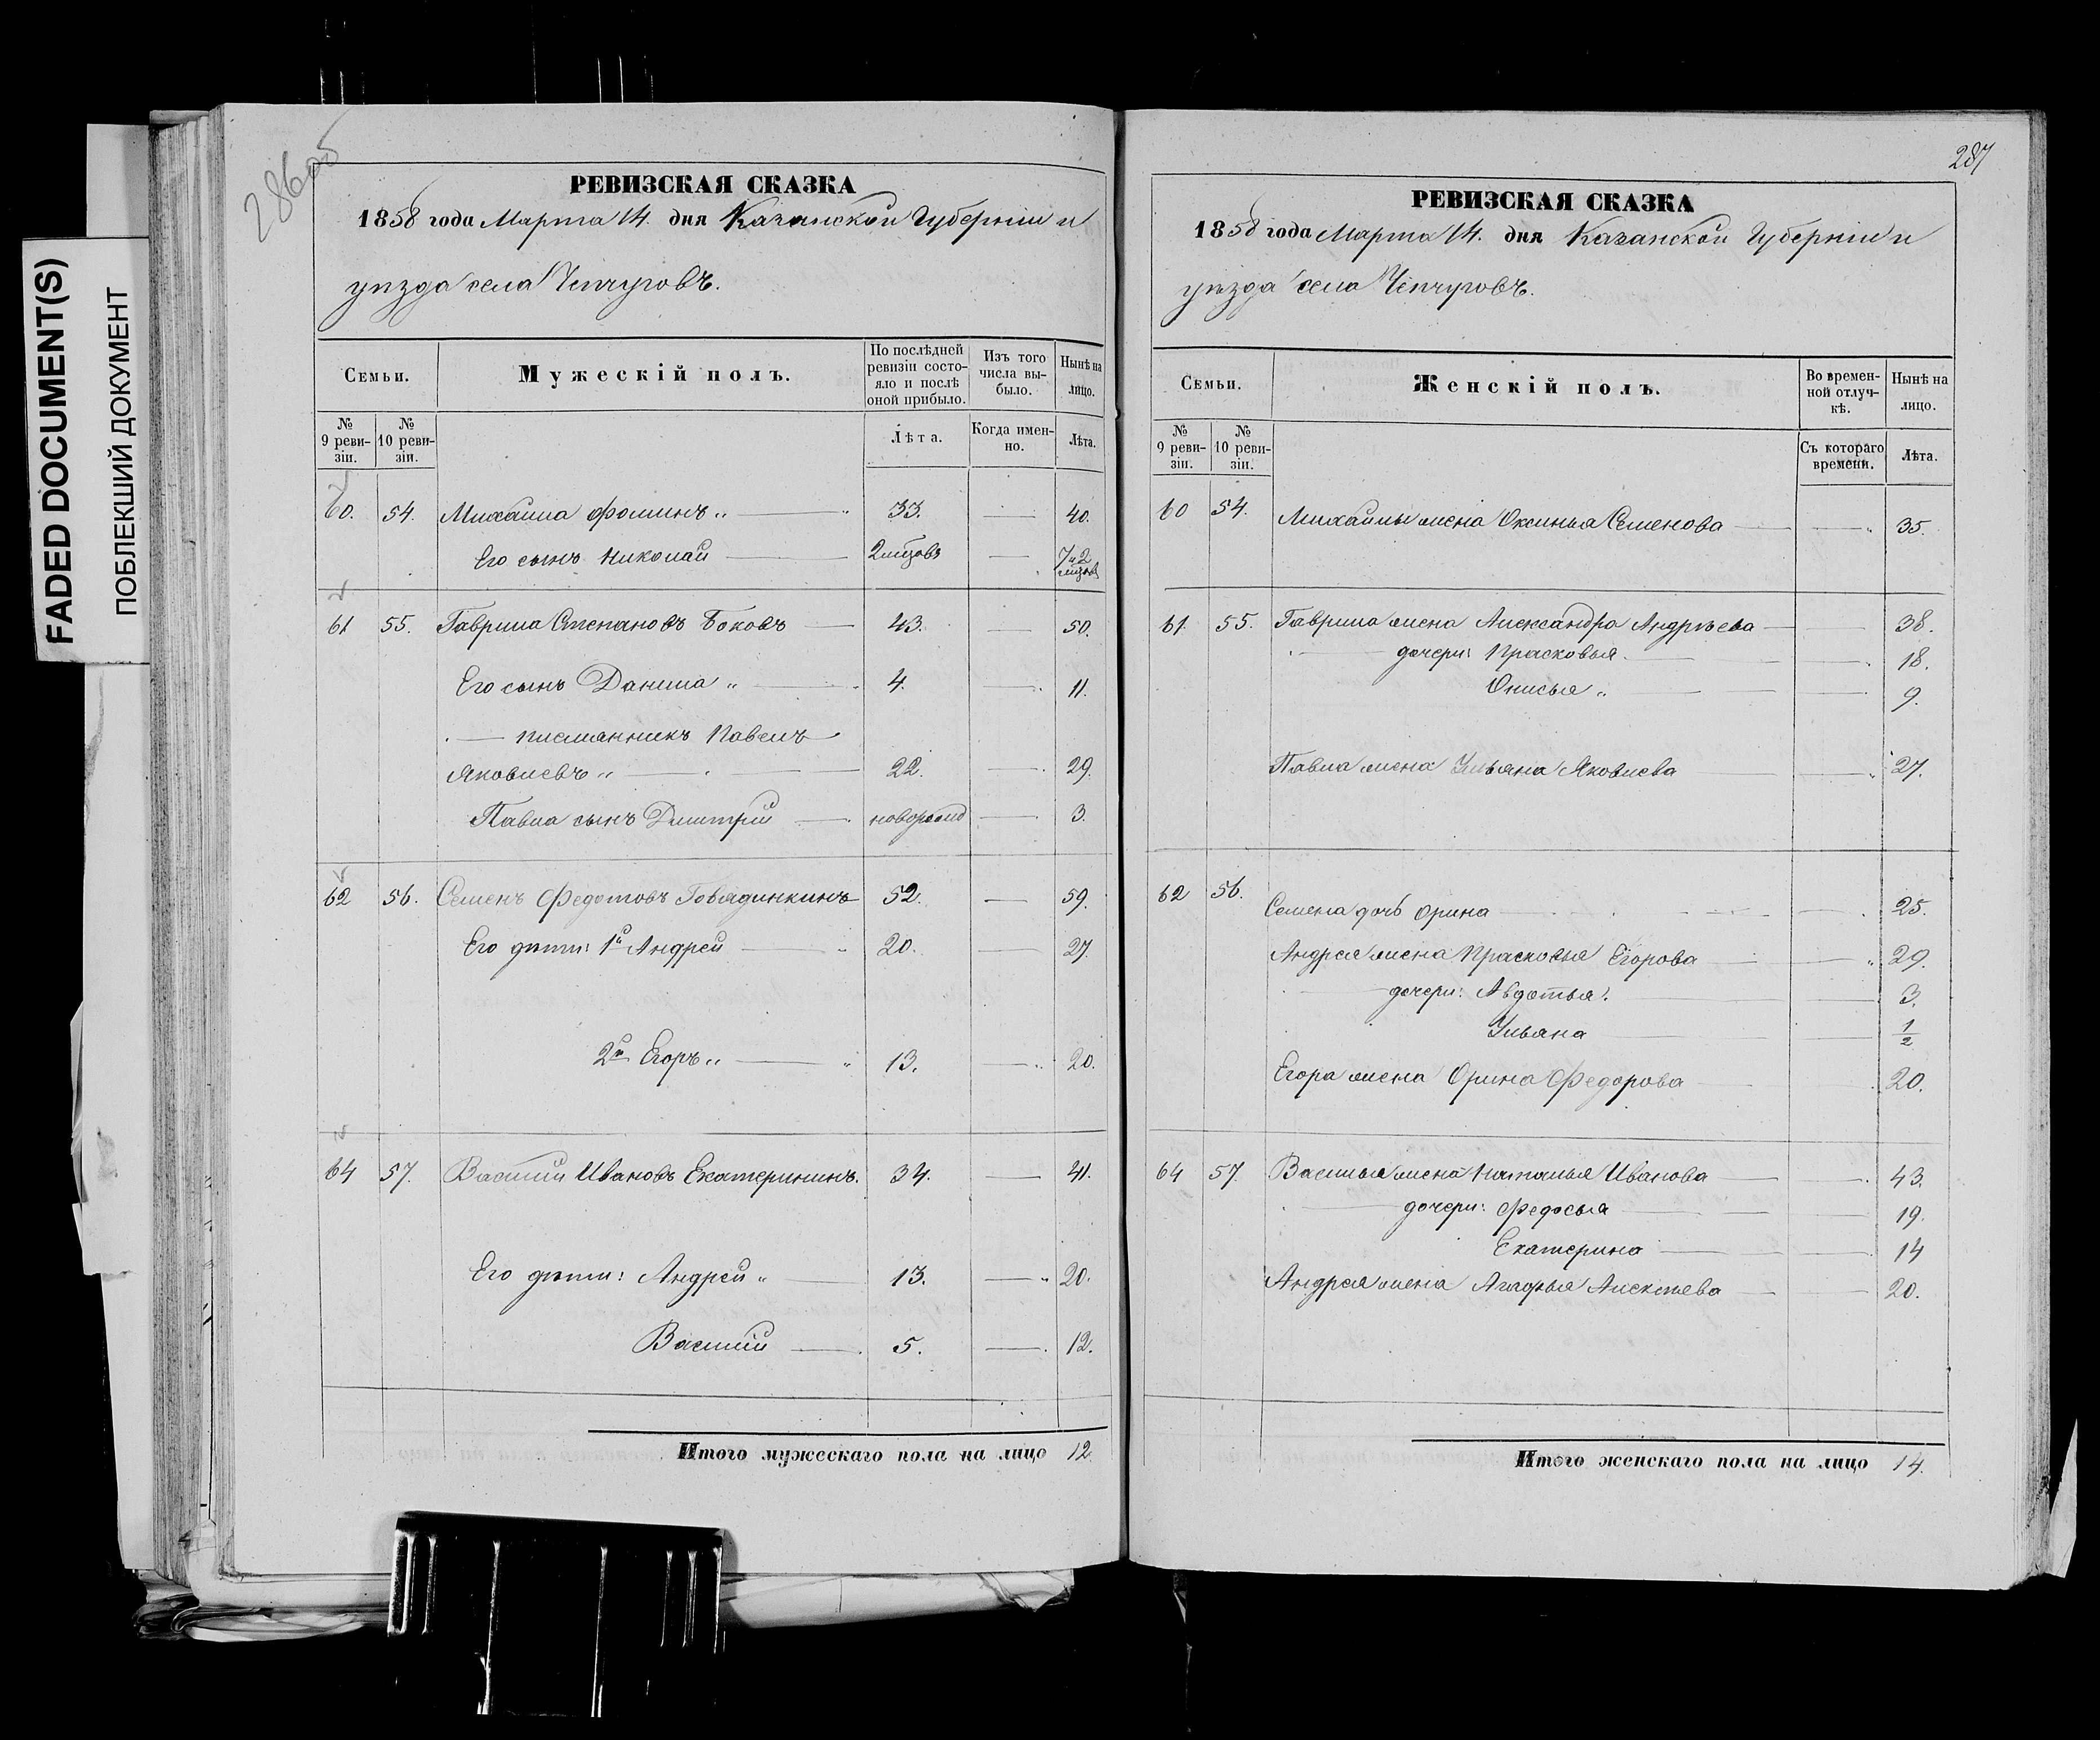 FADED DOCUMENT(S)
ПОБЛЕКШИЙ ДОКУМЕНТ
286об
РЕВИЗСКАЯ СКАЗКА
1858 года Марта 14. дня Казанской Губерніи и
уѣзда села Чепчуговъ.
Семьи.
Мужескій полъ.
По послѣдней ревизіи состо-
яло и послѣ
оной прибыло.
Изъ того
числа вы-
было.
Нынѣ на
лицо.
№
9 реви-
зіи.
№
10 реви-
зіи.
Лѣта.
Когда имен-
но.
Лѣта.
60. 54. Михайла Фоминъ „ 33. 40.
Его сынъ Николай 2 мѣцовъ 7 и 2 мѣцовъ
61 55. Гаврила Степановъ Боковъ 43. 50.
Его сынъ Данила „ 4. 11.
племянникъ Павелъ
Яковлевъ „ 22. 29.
Павла сынъ Дмитрій новорожд 3.
62 56. Семенъ Федотовъ Говядинкинъ 52. 59.
Его дѣти: 1й Андрей 20. 27.
2й Егоръ „ 13. 20.
64 57. Василий Ивановъ Екатерининъ. 34. 41.
Его дѣти: Андрей „ 13. 20.
Василий 5. 12.
Итого мужескаго пола на лицо 12
287
РЕВИЗСКАЯ СКАЗКА
1858 года Марта 14. дня Казанской Губерніи и
уѣзда села Чепчуговъ.
Семьи.
Женскій полъ.
Во времен-
ной отлуч-
кѣ.
Нынѣ на
лицо.
№
9 реви-
зіи.
№
10 реви-
зіи.
Съ котораго
времени.
Лѣта.
60 54. Михайлы жена Оксинья Семенова 35.
61. 55. Гаврила жена Александра Андрѣева 38.
дочери: Прасковья 18.
Онисья „ 9.
Павла жена Ульяна Яковлева 27.
62 56. Семена дочь Орина 25.
Андрея жена Прасковья Егорова 29.
дочери: Авдотья 3.
Ульяна 1/2
Егора жена Орина Федорова 20.
64 57. Василья жена Наталья Иванова 43.
дочери: Федосья 19.
Екатерина 14
Андрея жена Агафья Алексѣева 20.
Итого женскаго пола на лицо 14.